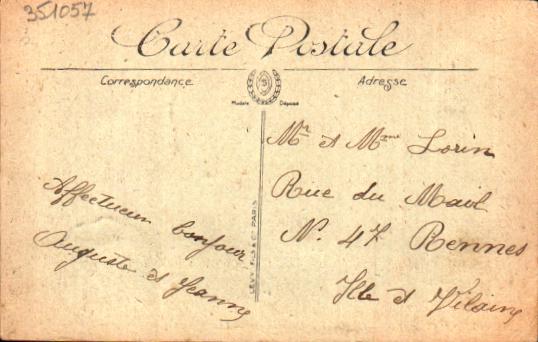 351057
Carte Postale
Correspondance
Adresse
Modèle Déposé
Affectueux bonjour
Auguste et Jeanne
LÉVY FILS & Cie PARIS
Mr et Mme Lorin
Rue du Mail
N. 47 Rennes
Ille et Vilaine